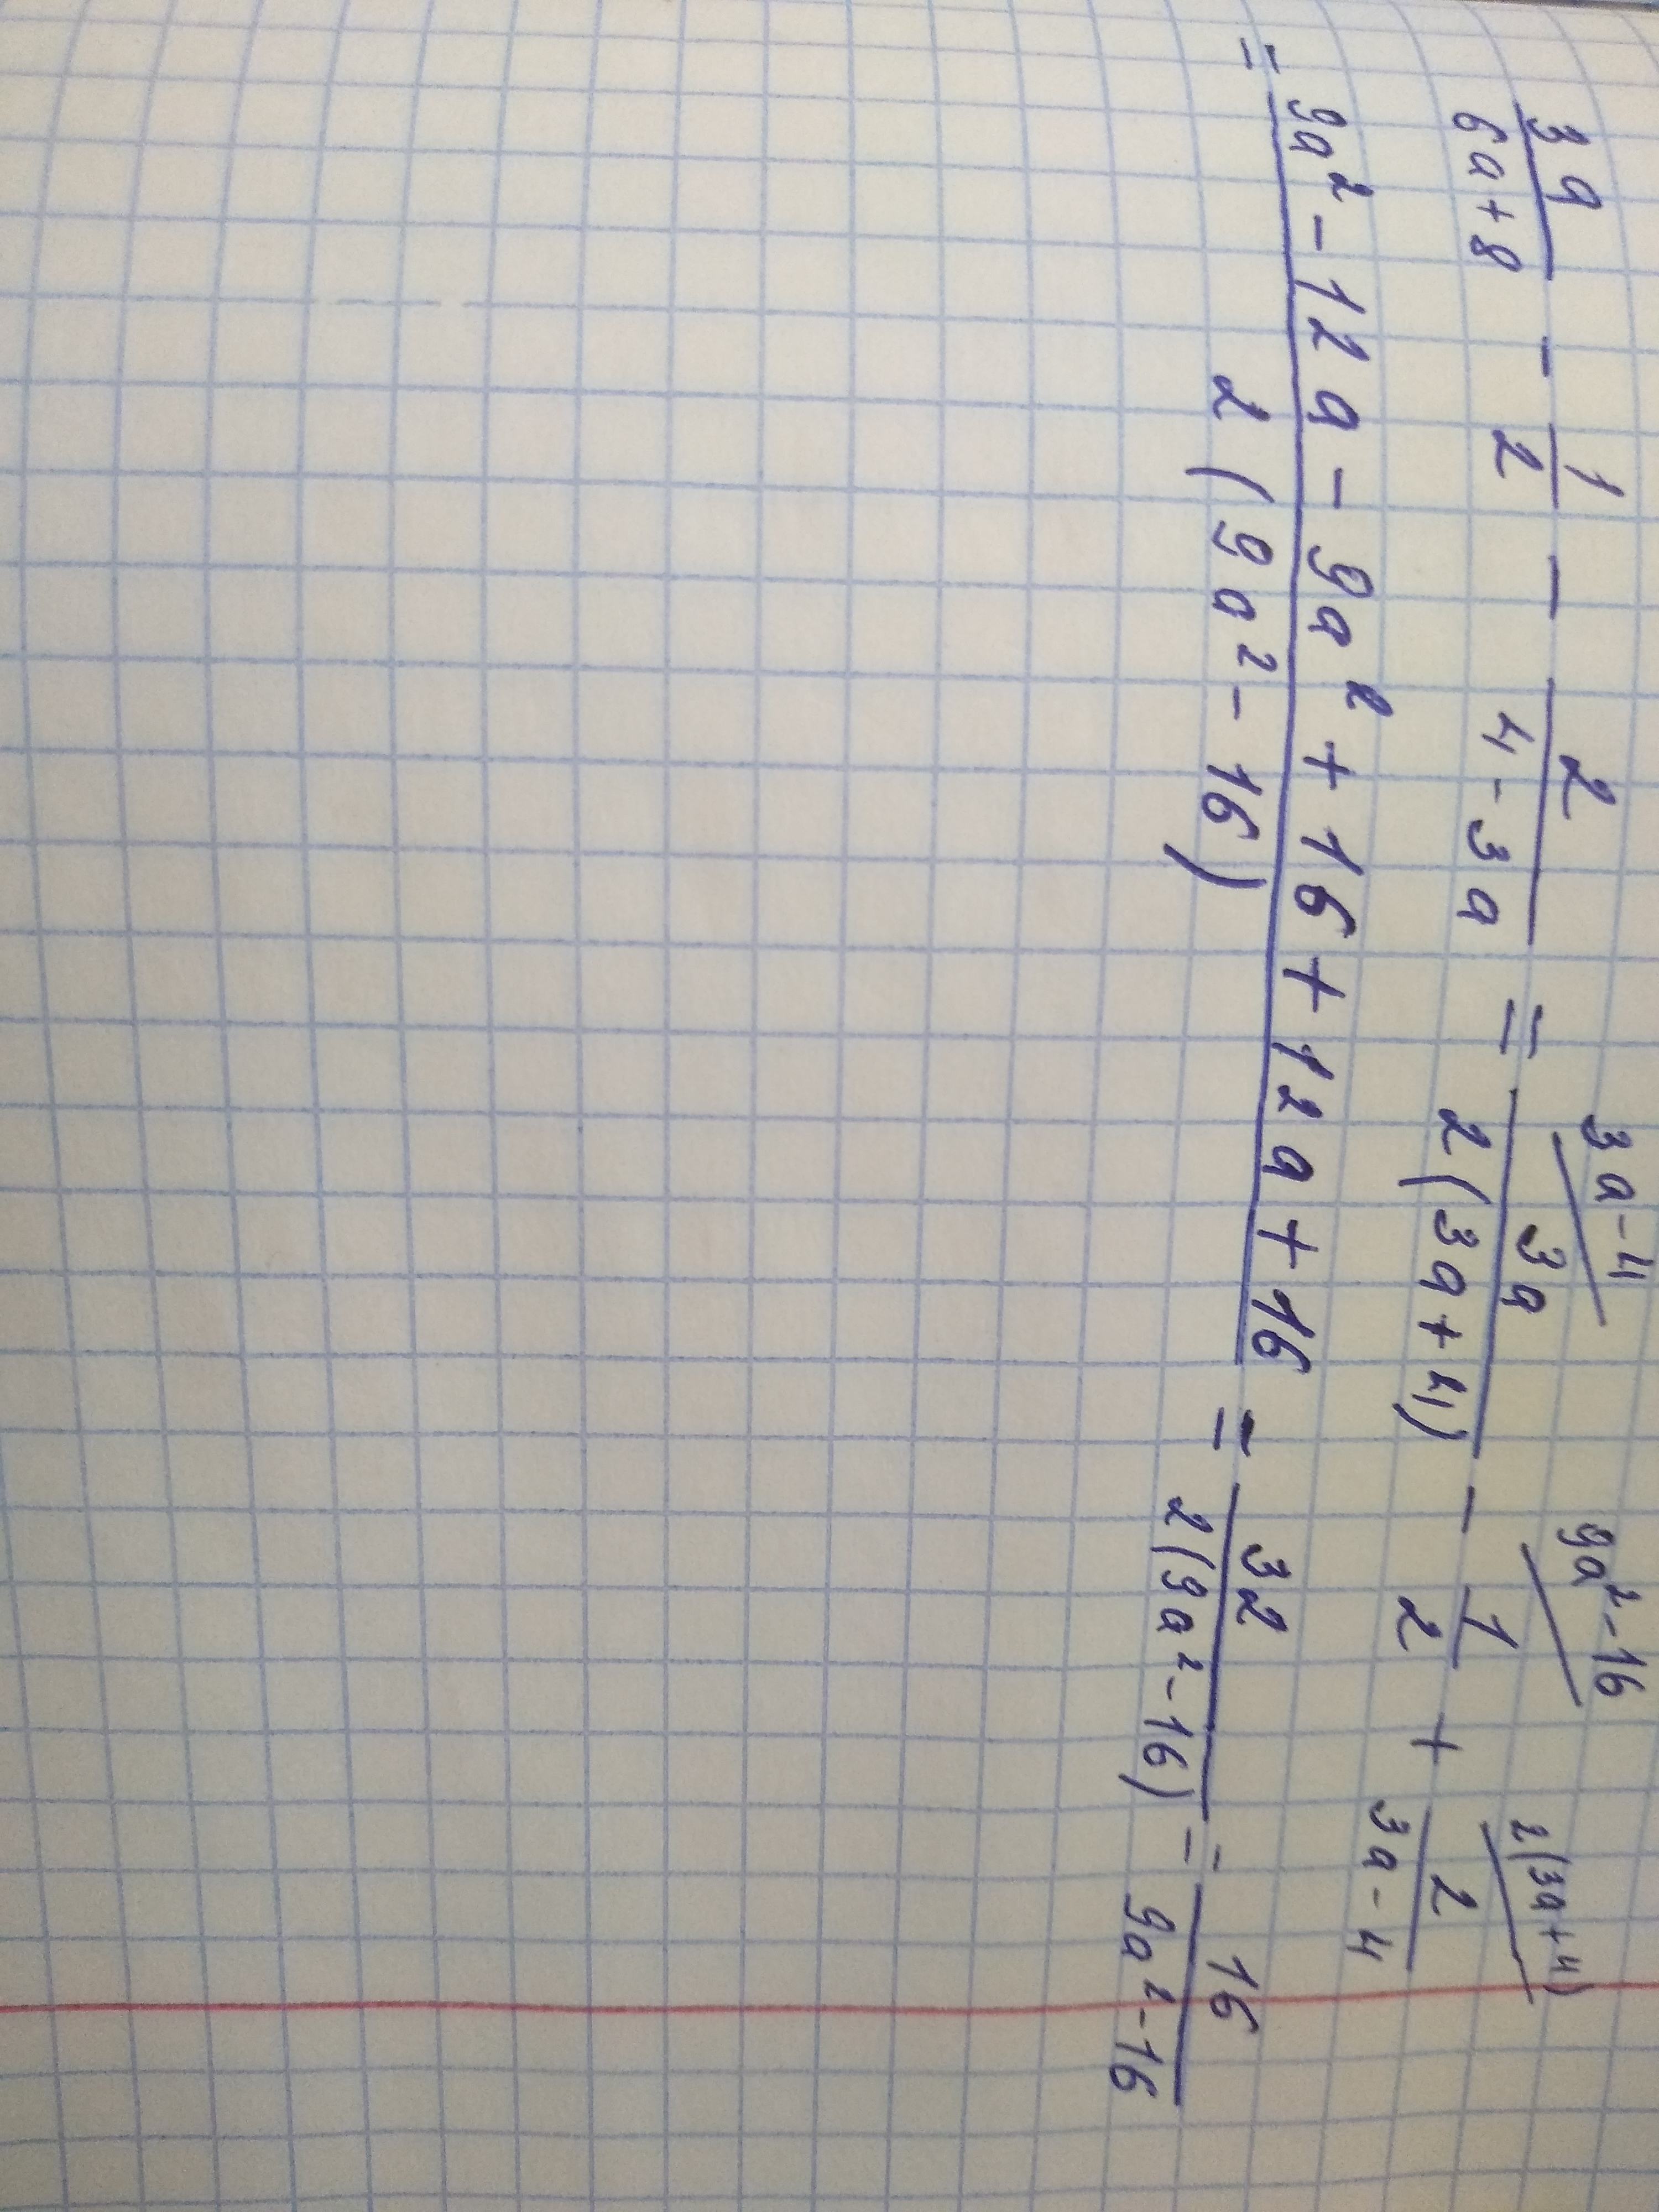 3a/(6a+8) - 1/2 - 2/(4-3a) = 3a/(2(3a+4)) \ 3a-4 - 1/2 \ 9a²-16 + 2/(3a-4) \ 2(3a+4)
= (9a²-12a-9a²+16+12a+16)/(2(9a²-16)) = 32/(2(9a²-16)) = 16/(9a²-16)